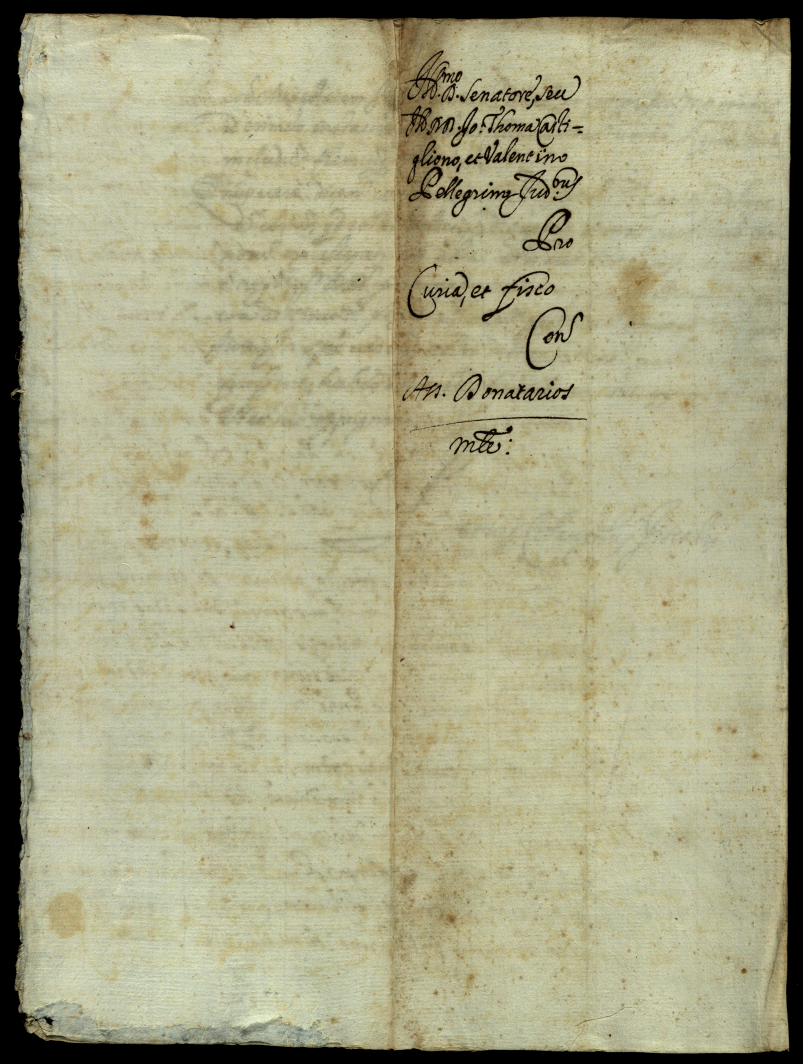 Ill.mo
D. Senatore, seu
Ill. DD. Jo: Thoma Casti=
gliono, et Valentino
Pellegrino Jud.bus
Pro
Curia, et fisco
Cons
Donatarios